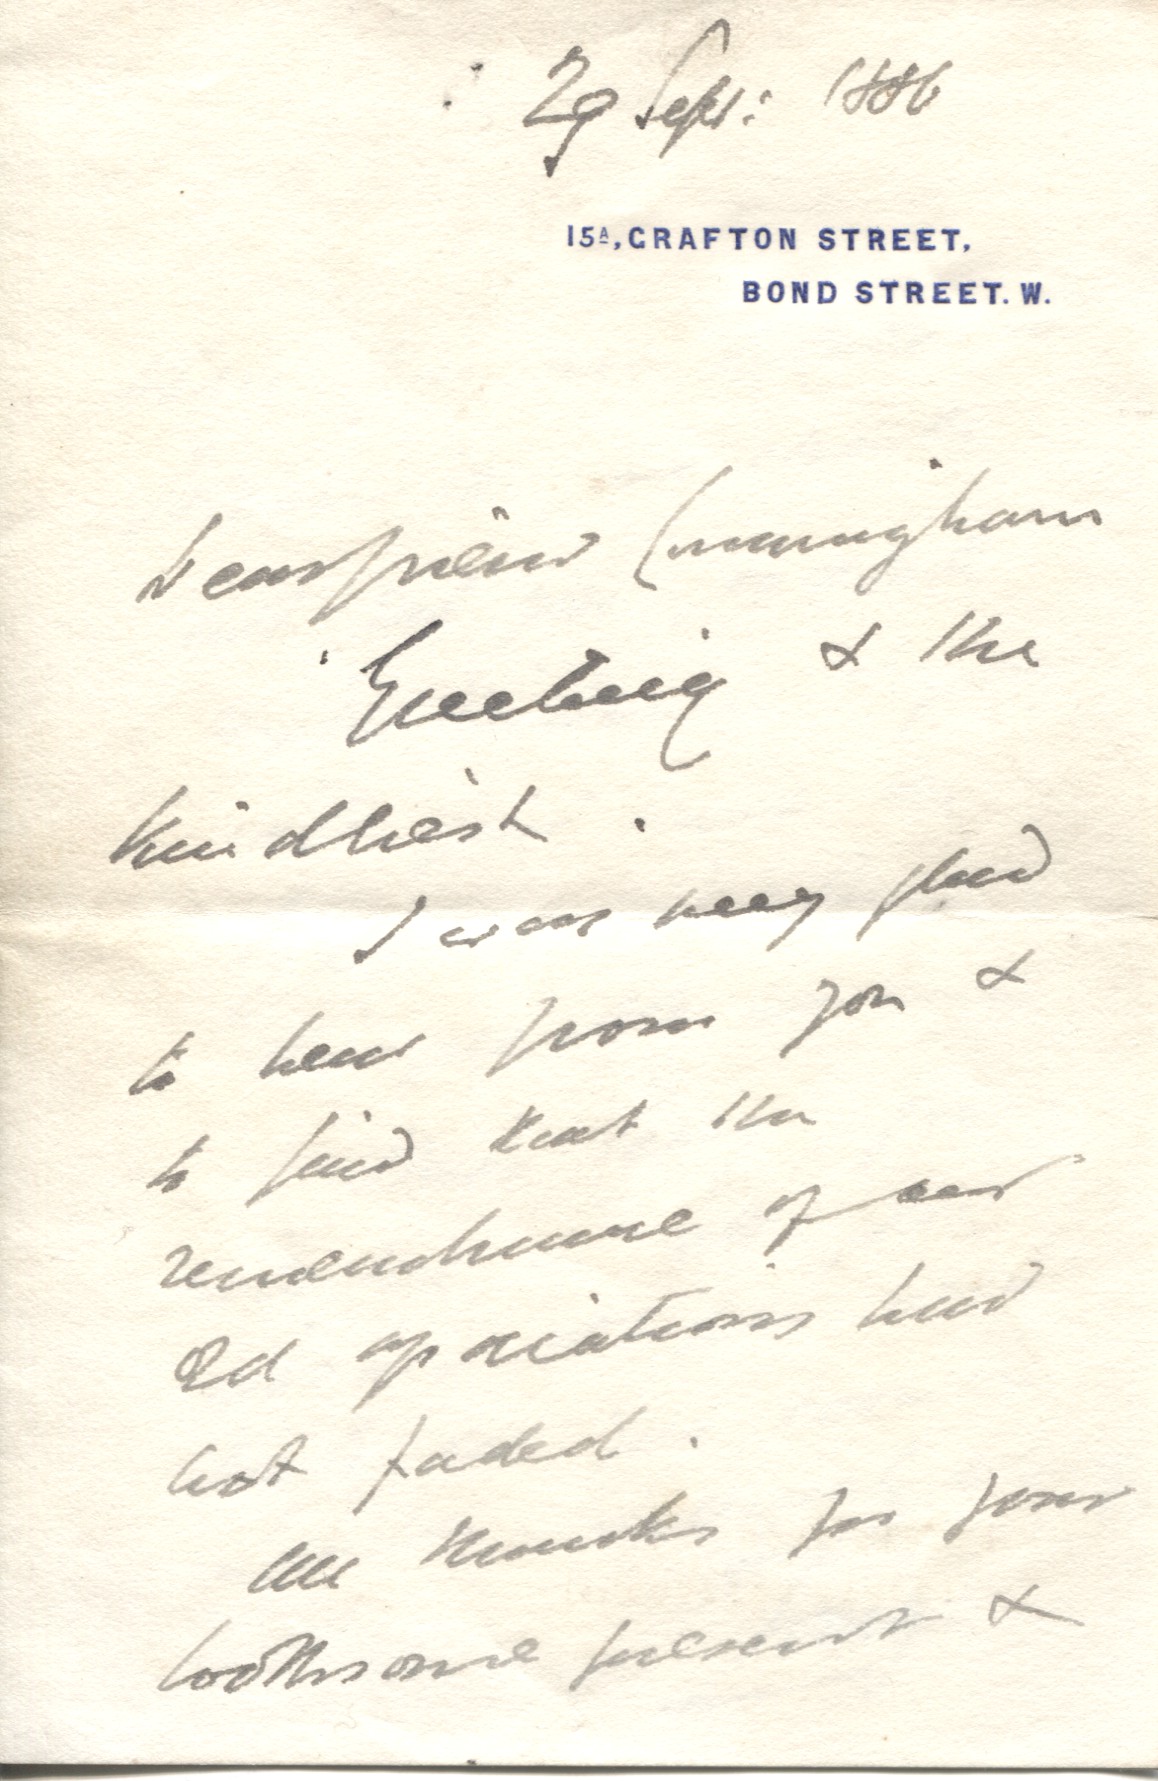 29 Sept: 1886
15A, GRAFTON STREET,
BOND STREET. W.
Dear friend Cunningham
Greeting & the
kindliest.
I was very glad
to hear from you &
to find that the
remembrance of our
old associations had
not faded.
All thanks for your
toothsome present &